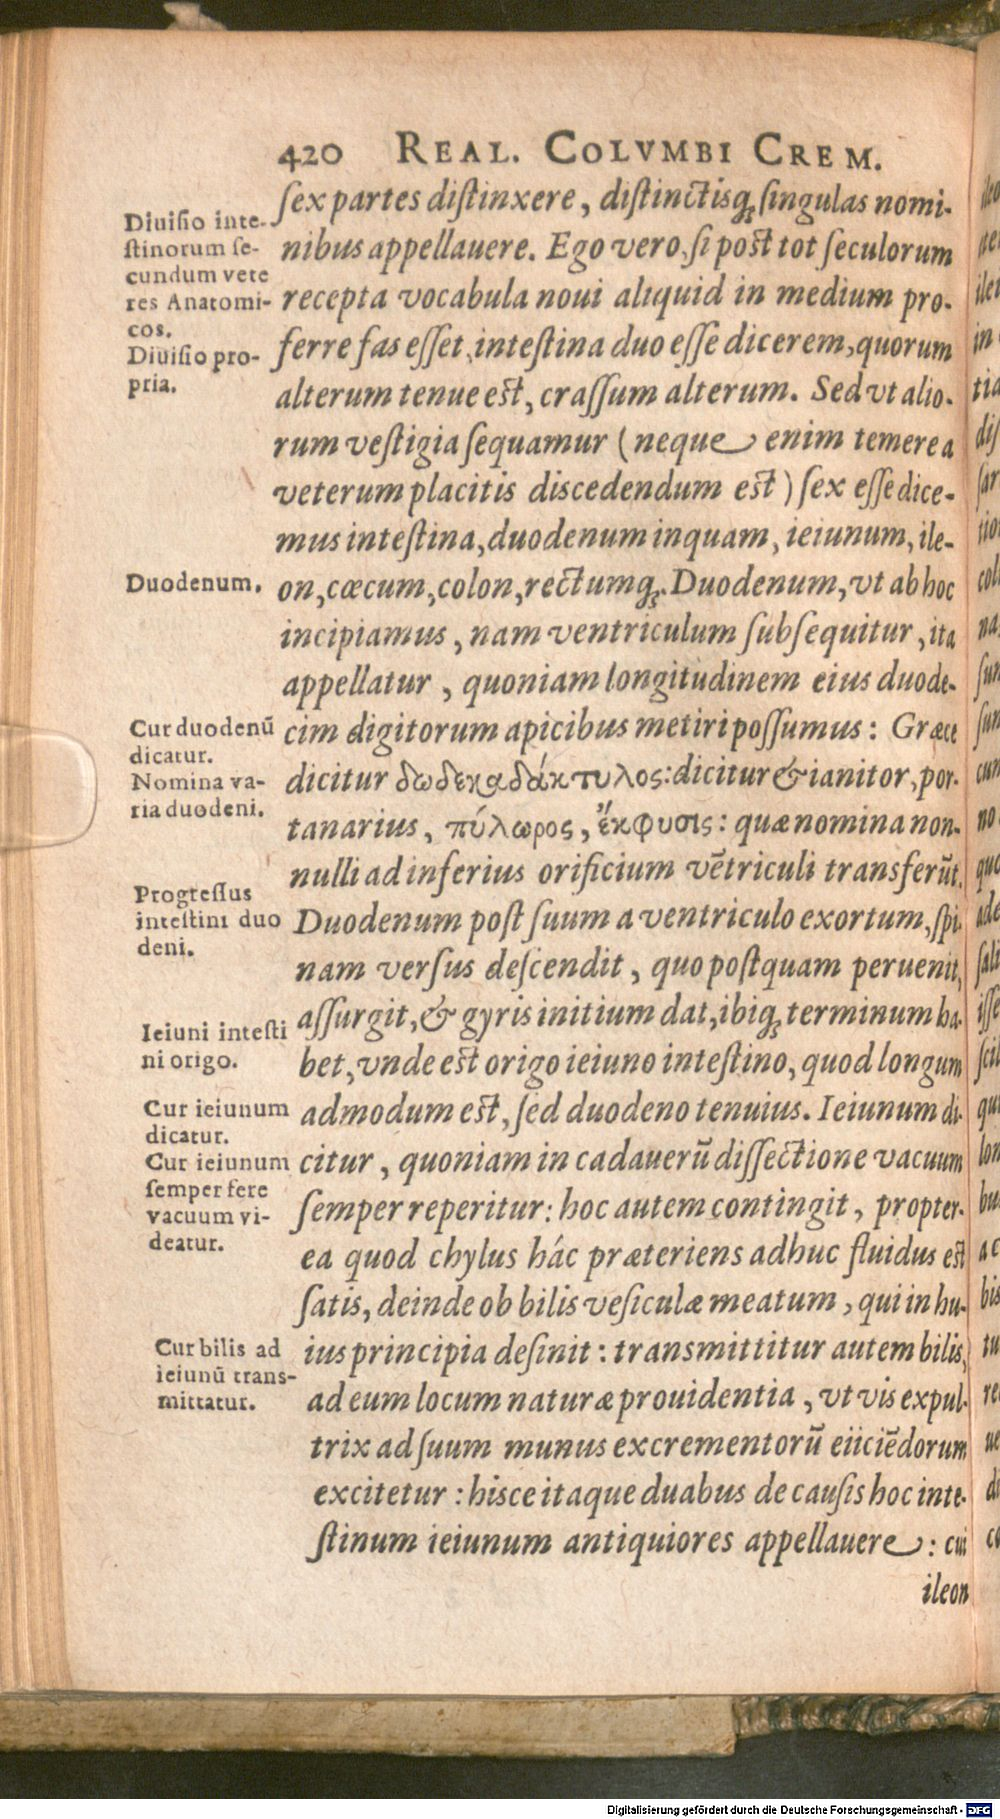 420 REAL. COLVMBI CREM.
sex partes distinxere, distinctisq́; singulas nomi-
nibus appellauere. Ego vero, si post tot seculorum
recepta vocabula noui aliquid in medium pro-
ferre fas esset, intestina duo esse dicerem, quorum
alterum tenue est, crassum alterum. Sed vt alio-
rum vestigia sequamur (neque enim temere a
veterum placitis discedendum est) sex esse dice-
mus intestina, duodenum inquam, ieiunum, ile-
on, cœcum, colon, rectumq́;. Duodenum, vt ab hoc
incipiamus, nam ventriculum subsequitur, ita
appellatur, quoniam longitudinem eius duode-
cim digitorum apicibus metiri possumus: Græce
dicitur δωδεκαδάκτυλος: dicitur & ianitor, por-
tanarius, πύλωρος, ἔκφυσις: quæ nomina non-
nulli ad inferius orificium vētriculi transferūt.
Duodenum post suum a ventriculo exortum, spi-
nam versus descendit, quo postquam peruenit,
assurgit, & gyris initium dat, ibiq́; terminum ha-
bet, vnde est origo ieiuno intestino, quod longum
admodum est, sed duodeno tenuius. Ieiunum di-
citur, quoniam in cadauerū dissectione vacuum
semper reperitur: hoc autem contingit, propter-
ea quod chylus hác præteriens adhuc fluidus est
satis, deinde ob bilis vesiculæ meatum, qui in hu-
ius principia desinit: transmittitur autem bilis,
ad eum locum naturæ prouidentia, vt vis expul-
trix ad suum munus excrementorū eiiciēdorum
excitetur: hisce itaque duabus de causis hoc inte-
stinum ieiunum antiquiores appellauere: cui
ileon
Diuisio inte-
stinorum se-
cundum vete
res Anatomi-
cos.
Diuisio pro-
pria.
Duodenum.
Cur duodenū
dicatur.
Nomina va-
ria duodeni.
Progressus
intestini duo
deni.
Ieiuni intesti
ni origo.
Cur ieiunum
dicatur.
Cur ieiunum
semper fere
vacuum vi-
deatur.
Cur bilis ad
ieiunū trans-
mittatur.
Digitalisierung gefördert durch die Deutsche Forschungsgemeinschaft - DFG